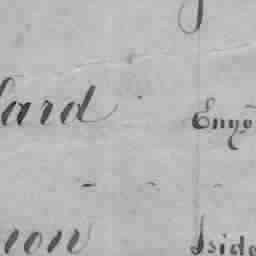 lard Engº
non Isido